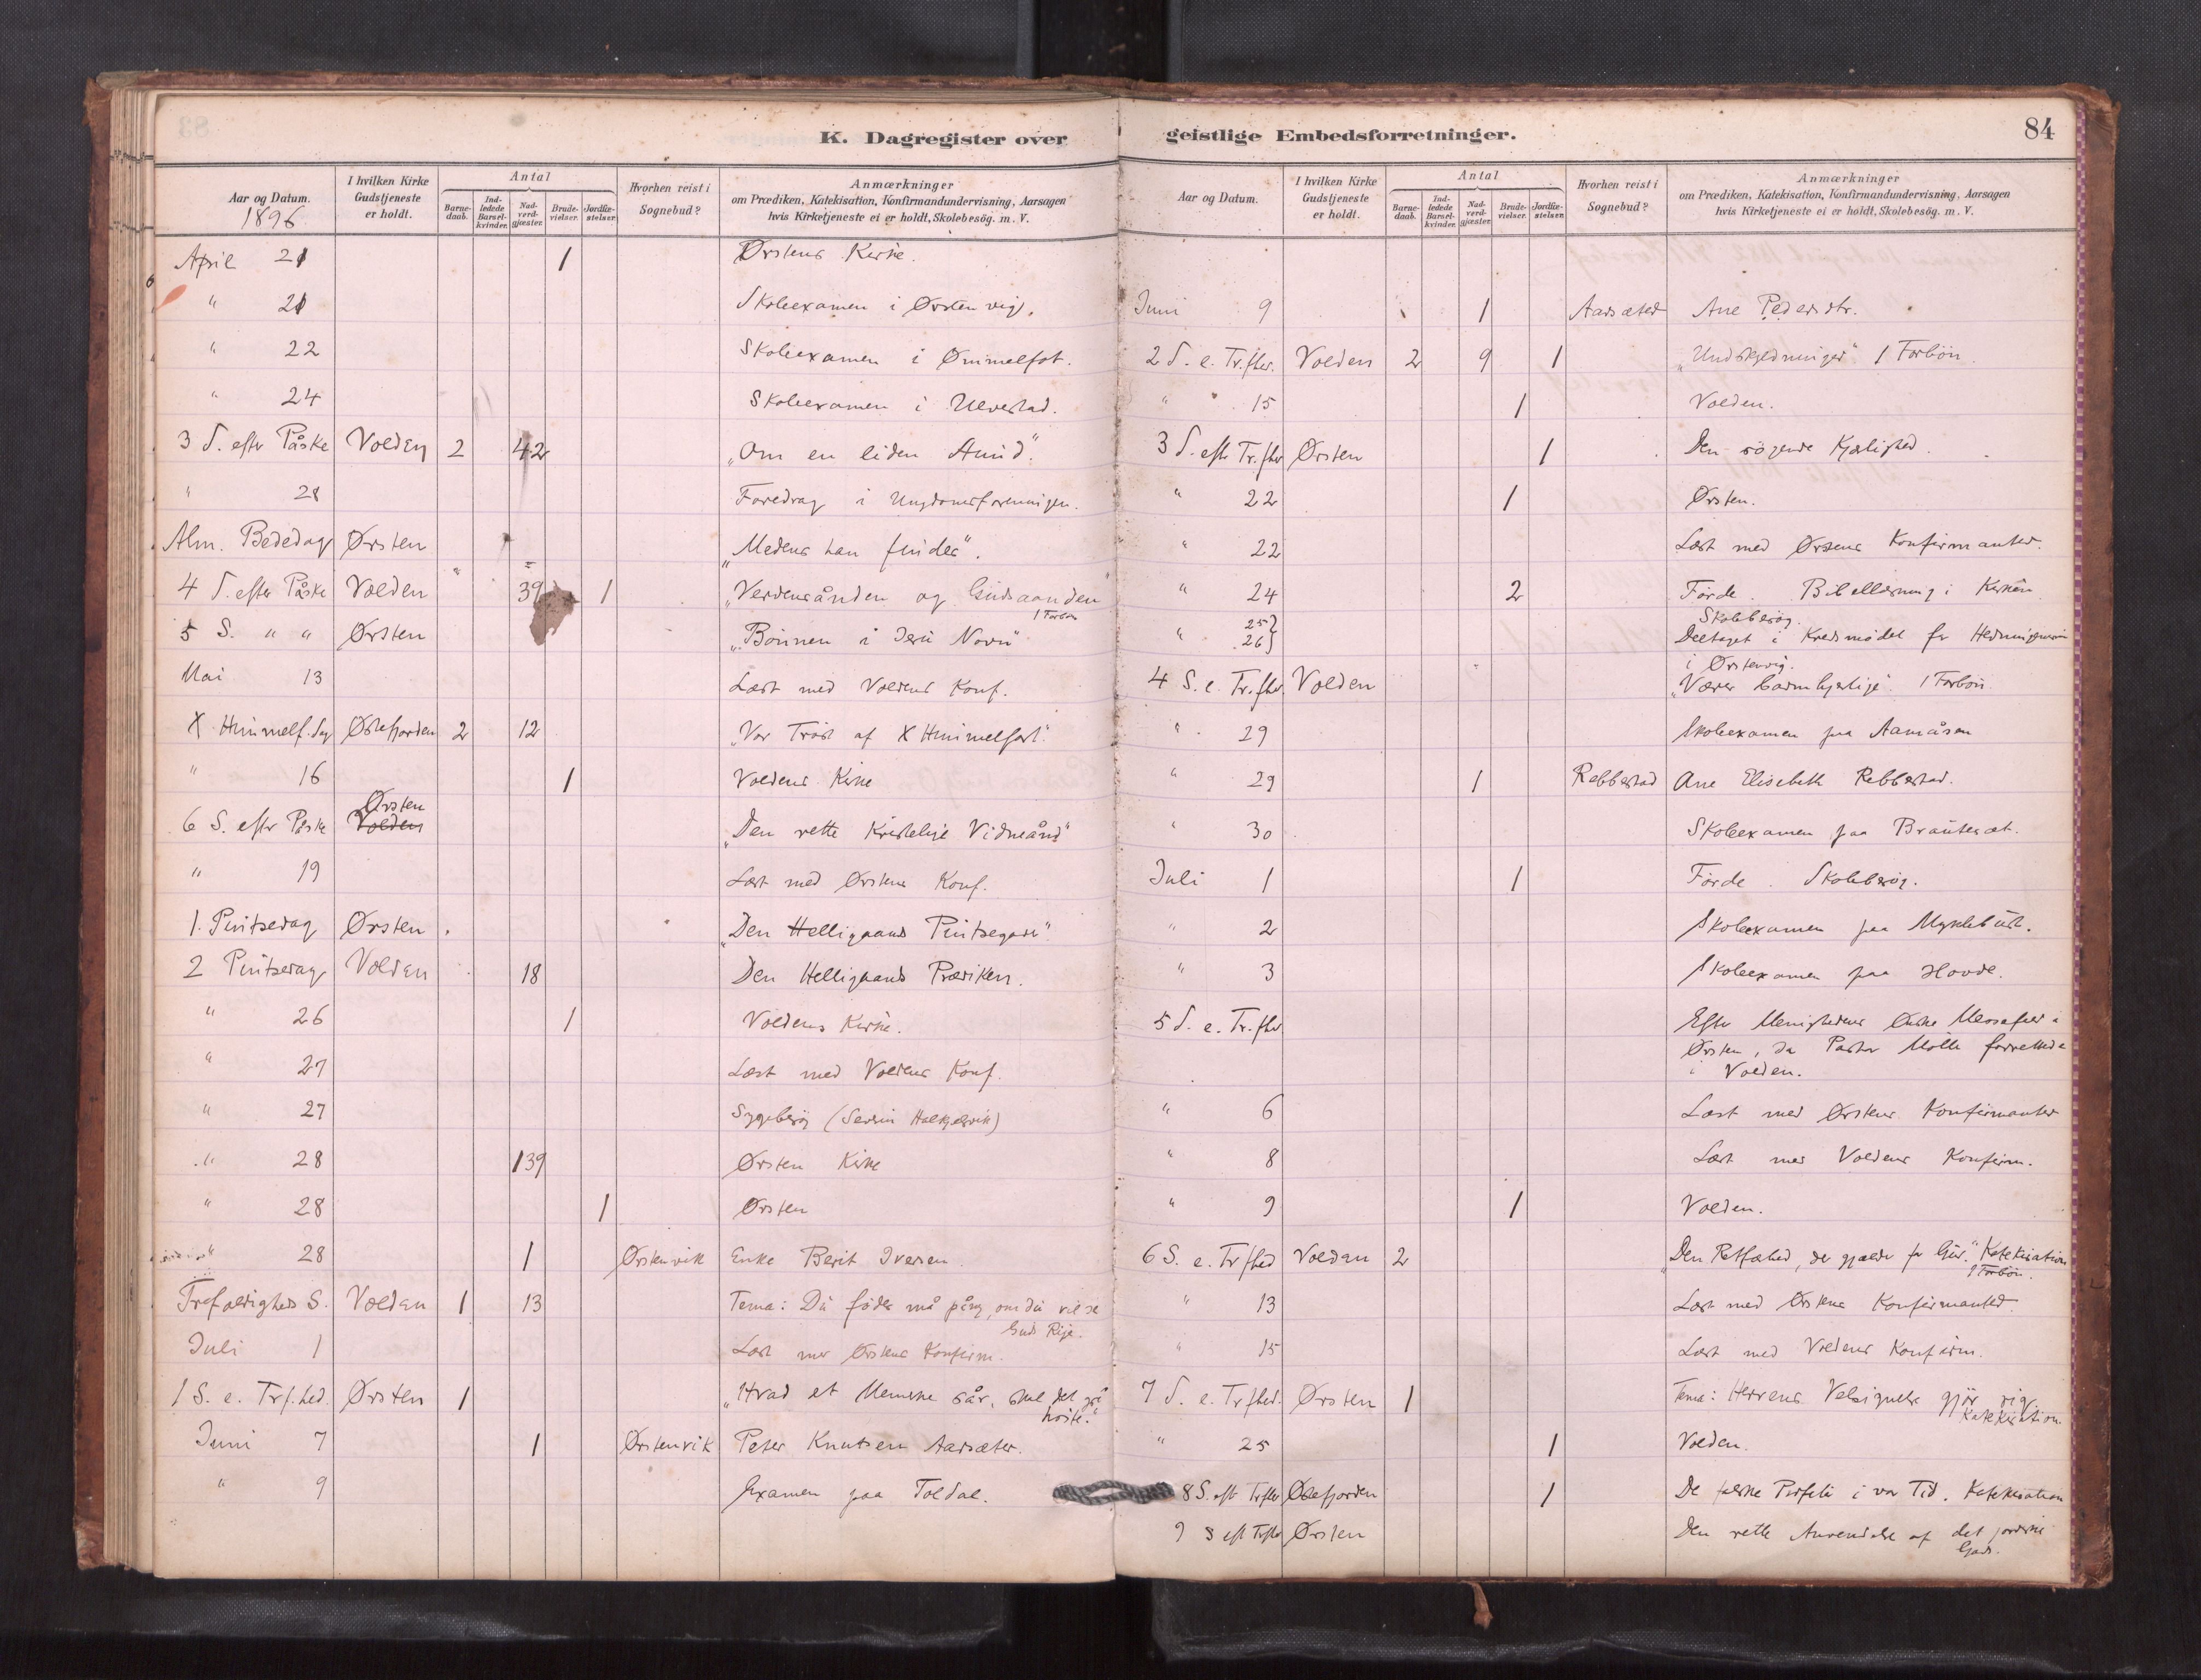 K. Dagregister over
Aar og Datum. 1896
I hvilken Kirke Gudstjeneste er holdt.
Antal
Barnedaab.
Indledede Barselkvinder.
Nadverdgjæster.
Brudevielser.
Jordfæstelser.
Hvorhen reist i Sognebud?
Anmærkninger om Prædiken, Katekisation, Konfirmandundervisning, Aarsagen hvis Kirketjeneste ei er holdt, Skolebesøg. m. V.
April 21 1 Ørstens Kirke.
" 21 Skoleexamen i Ørstenvig.
" 22 Skoleexamen i
" 24 Skoleexamen i Ulvestad.
3 S. efter Påske Volden 2 42 "Om en liden Stund".
" 28 Foredrag i Ungdomsforeningen.
Alm. Bededag Ørsten "Medens han findes".
4 S. efter Påske Volden 39 1 "Verdensånden og Gudsaanden" 1 Forbøn
5 S. " " Ørsten "Bönnen i Jesu Navn"
Mai 13 Læst med Voldens Konf.
X Himmelf. dag Østefjorden 2 12 "Vor Tröst af X Himmelfart".
" 16 1 Voldens Kirke
6 S. efter Påske Ørsten Volden "Den rette Kristelige Vidneånd"
" 19 Læst med Ørstens Konf.
1. Pintsedag Ørsten "Den Helligaands Pintsegave"
2 Pintsedag Volden 18 Den Helligaands Prædiken.
" 26 1 Voldens Kirke.
" 27 Læst med Voldens Konf.
" 27 Sygebesög
" 28 139 Ørsten Kirke
" 28 1 Ørsten
" 28 1 Ørstenvik Enke Berit Iversen
Trefoldigheds S. Volden 1 13 Tema: Du födes må påny, om du vil se Guds Rige.
Juli 1 Læst med Ørstens Konfirm.
1 S. e. Trf.hed. Ørsten 1 "Hvad et Menneske sår, skal det og höste."
Juni 7 1 Ørstenvik Peter Knutsen Aarsæter.
" 9 Examen paa Foldal.
geistlige Embedsforretninger.
84
Aar og Datum.
I hvilken Kirke Gudstjeneste er holdt.
Antal
Barnedaab.
Indledede Barselkvinder.
Nadverdgjæster.
Brudevielser.
Jordfæstelser.
Hvorhen reist i Sognebud?
Anmærkninger om Prædiken, Katekisation, Konfirmandundervisning, Aarsagen hvis Kirketjeneste ei er holdt, Skolebesøg. m. V.
Juni 9 1 Aarsæted Ane Pedersdtr.
2 S. e. Tr.fhed. Volden 2 9 1 "Undskyldninger" 1 Forbön
" 15 1 Volden.
3 S. eft Tr.fhed Ørsten 1 Den sögende Kjærlighed.
" 22 1 Ørsten.
" 22 Læst med Ørstens Konfirmanter.
" 24 2 Förde. Bibellæsning i Kirken Skolebesög.
" 25 26 Deltaget i Kredsmödet for Hedningemis i Ørstenvig.
4 S. e. Tr.fhed Volden "Værer barmhjertige". 1 Forbön
" 29 Skoleexamen paa Aamåsen
" 29 1 Rebbestad Ane Elisebeth Rebbestad.
" 30 Skoleexamen paa Brautesæt.
Juli 1 1 Förde. Skolebesög.
" 2 Skoleexamen paa Myklebust.
" 3 Skoleexamen paa Hovde.
5 S. e. Tr.fhed Efter Menighedens Ønske Messefald i Ørsten, da Pastor Molle forrettede i Volden.
" 6 Læst med Ørstens Konfirmanter
" 8 Læst med Voldens Konfirm.
" 9 1 Volden.
6 S. e. Trfhed Volden 2 "Den Retfæhed, der gjælder for Gud." Katekisation 1 Forbön.
" 13 Læst med Ørstens Konfirmanter
" 15 Læst med Voldens Konfirm.
7 S. e. Trfhed. Ørsten 1 Tema: Herrens Velsignelse gjör rig. Katekisation.
" 25 1 Volden.
8 S. eft Trfhed Østefjorden 1 De falske Profeter i vor Tid. Katekisation
9 S eft Trfhed Ørsten Den rette Anvendelse af det jordiske Gods.